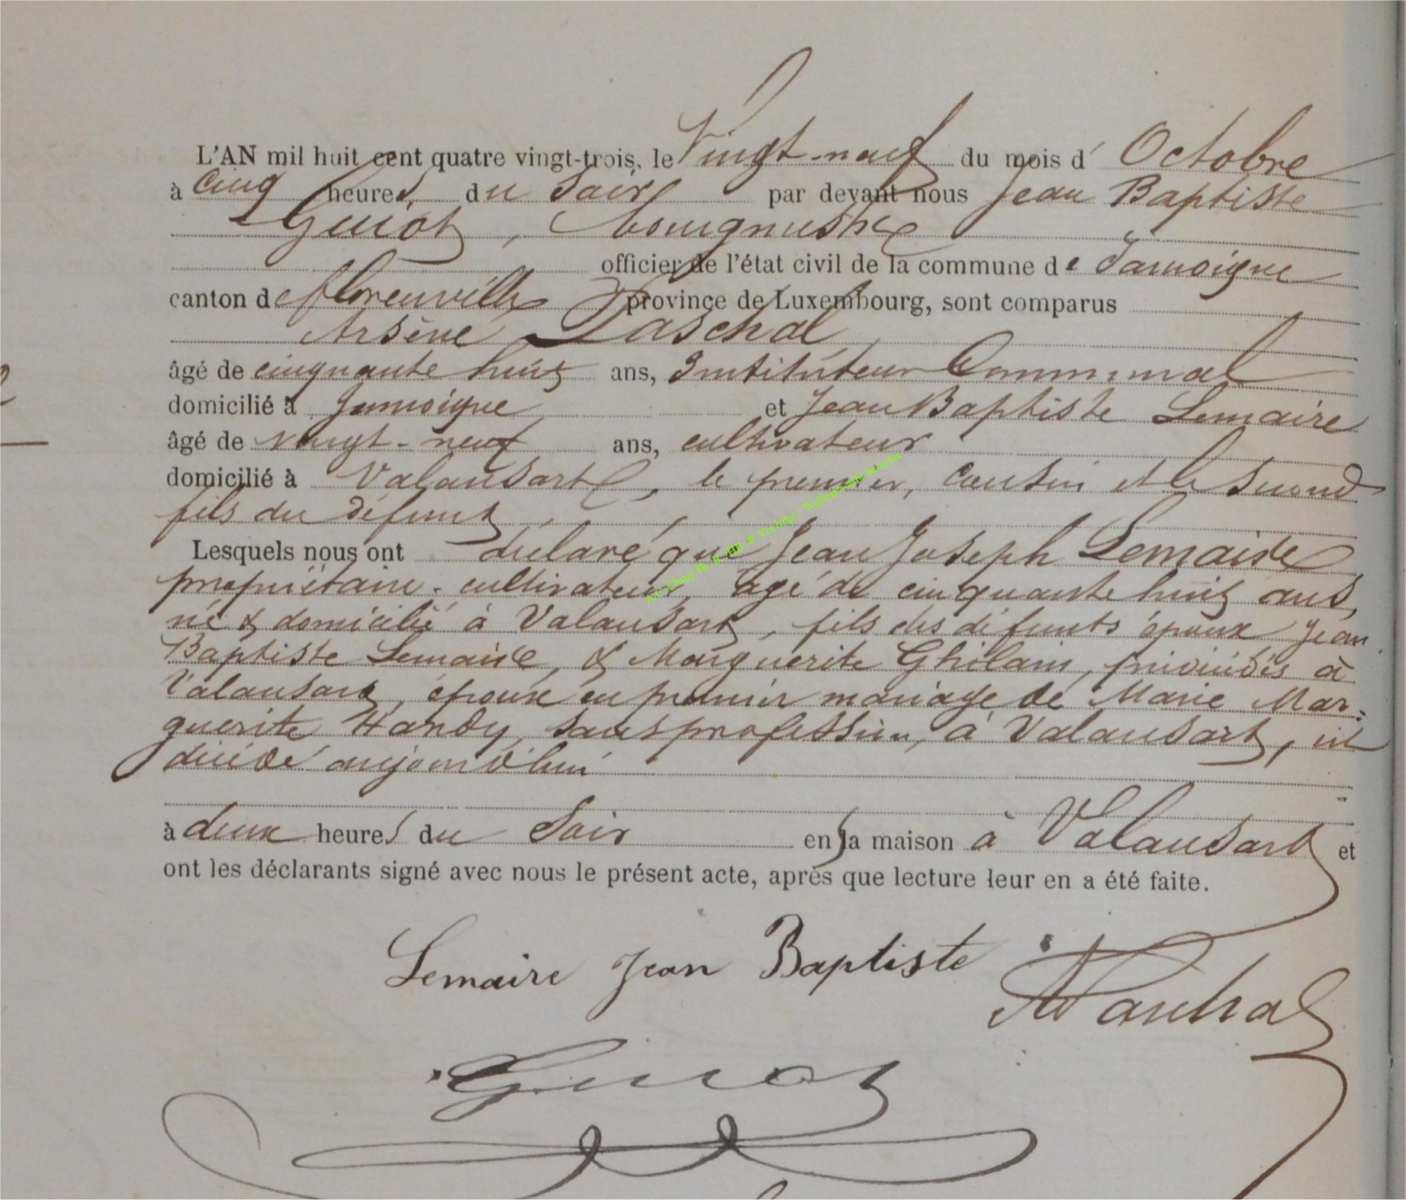 L'AN mil huit cent quatre vingt-trois, le Vingt-neuf du mois d' Octobre
à cinq heures du soir par devant nous Jean Baptiste
Guiot, bourgmestre
officier de l'état civil de la commune de Jamoigne
canton de florenville province de Luxembourg, sont comparus
Arsène Paschal
âgé de cinquante huit ans, Instituteur Communal
domicilié à Jamoigne et Jean Baptiste Lemaire
âgé de vingt-neuf ans, cultivateur
domicilié à Valansart, le premier, cousin et le second
fils du défunt
Lesquels nous ont déclaré que Jean Joseph Lemaire
propriétaire-cultivateur, agé de cinquante huit ans,
né & domicilié à Valansart, fils des défunts époux Jean
Baptiste Lemaire, & Marguerite Ghilain, décédés à
Valansart, époux en premier mariage de Marie Mar-
guerite Handy, sans profession, à Valansart, est
décédé aujourd'hui
à deux heures du soir en sa maison à Valansart et
ont les déclarants signé avec nous le présent acte, après que lecture leur en a été faite.
Lemaire Jean Baptiste
APaschal
Guiot